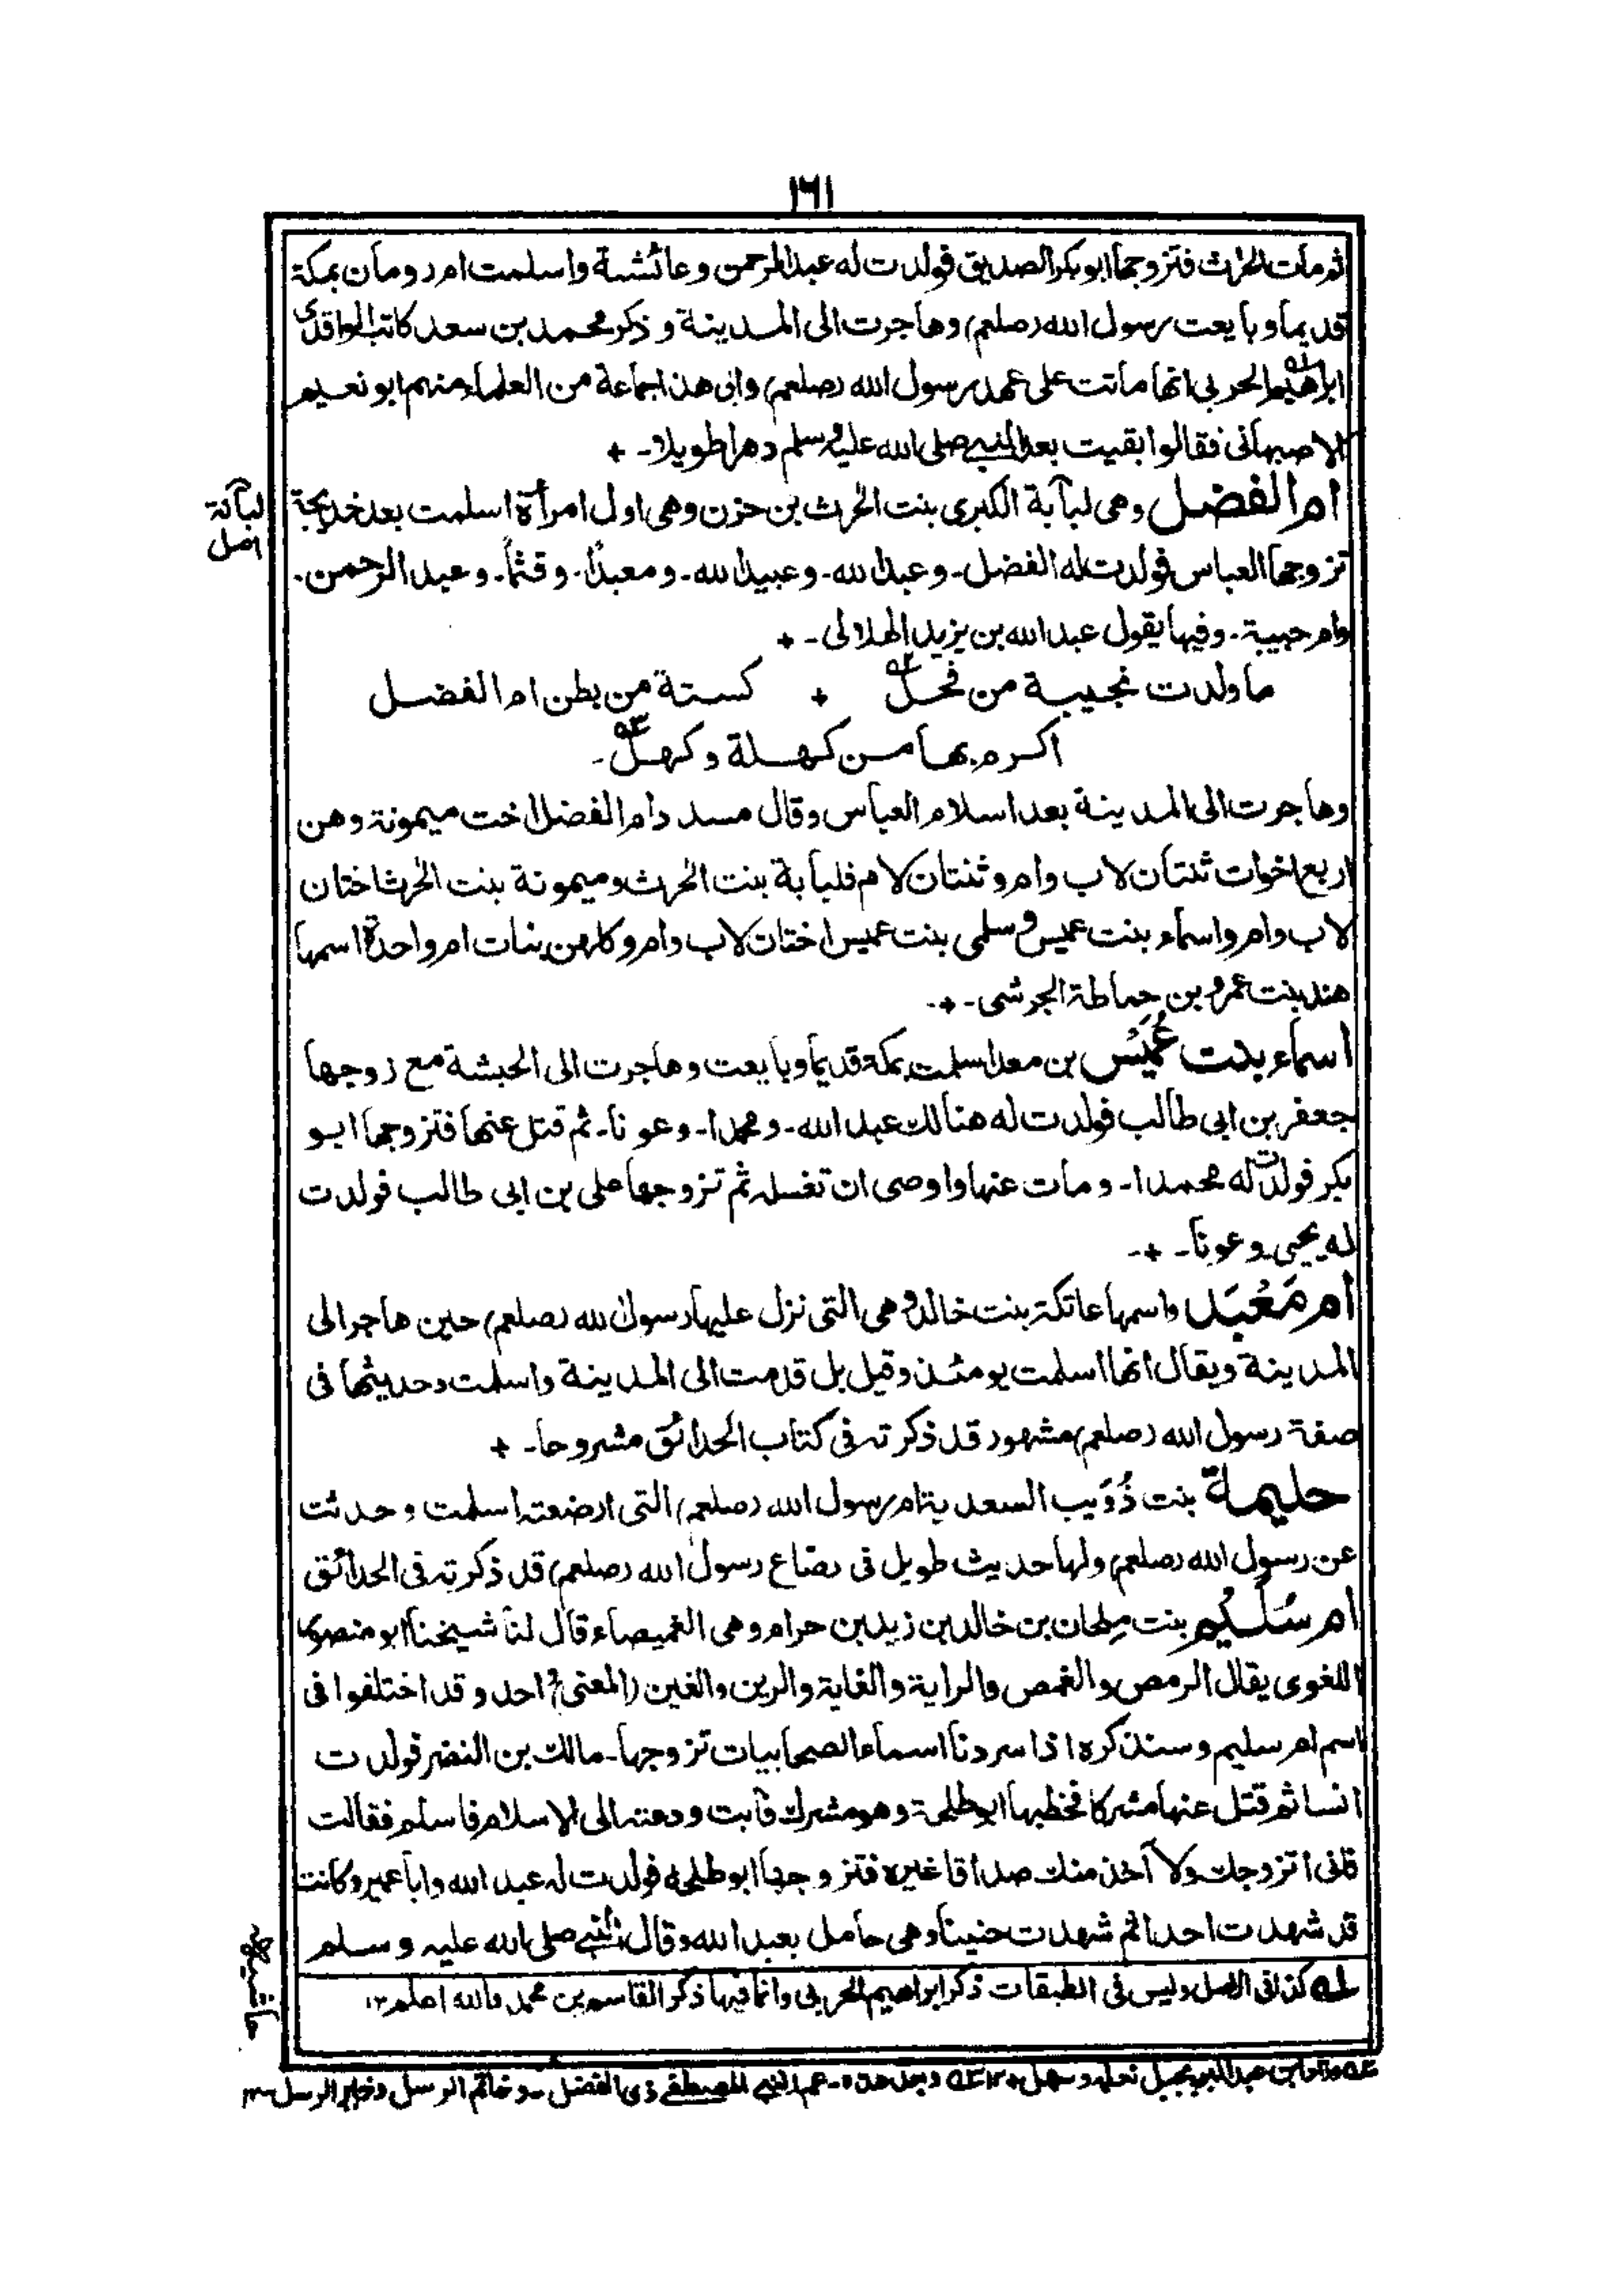 ١٦١
ثم مات الحرث فتزوجها ابو بكر الصديق فولدت له عبد الرحمن وعائشة واسلمت ام رومان بمكة
قديما وبايعت رسول الله (صلعم) وهاجرت الى المدينة و ذكر محمد بن سعد كاتب الواقدى
ابراهيم الحربي انها ماتت على عهد رسول الله (صلعم) وابى هذا جماعة من العلماء منهم ابو نعيم
الاصبهانى فقالوا بقيت بعد النبي صلى الله عليه وسلم دهرا طويلا-
ام الفضل وهى لبابة الكبرى بنت الحرث بن حزن وهى اول امرأة اسلمت بعد خديجة
لبآنة
اصل
تزوجها العباس فولدت له الفضل- وعبد الله- وعبيد الله- ومعبدًا- وقثمًا- وعبد الرحمن-
وام حبيبة- وفيها يقول عبد الله بن يزيد الهلالى-
ما ولدت نجيبة من فحل كستة من بطن ام الفضل
اكرم بها من كهلة وكهل-
وهاجرت الى المدينة بعد اسلام العباس وقال مسدد ام الفضل اخت ميمونة وهن
اربع اخوات ثنتان لاب وام وثنتان لام فلبابة بنت الحرث وميمونة بنت الحرث اختان
لاب وام واسماء بنت عميس وسلمى بنت عميس اختان لاب وام وكلهن بنات ام واحدة اسمها
هند بنت عمرو بن حماطة الجرشى-
اسماء بنت عُمَيْس بن معد اسلمت بمكة قديما وبايعت وهاجرت الى الحبشة مع زوجها
جعفر بن ابى طالب فولدت له هنالك عبد الله- ومحمدا- وعونا- ثم قتل عنها فتزوجها ابو
بكر فولدت له محمدا- ومات عنها واوصى ان تغسله ثم تزوجها على بن ابى طالب فولدت
له يحيى وعونا-
ام مَعْبَد واسمها عاتكة بنت خالد وهى التى نزل عليها رسول الله (صلعم) حين هاجر الى
المدينة ويقال انها اسلمت يومئذ وقيل بل قدمت الى المدينة واسلمت وحديثها فى
صفة رسول الله (صلعم) مشهور قد ذكرته فى كتاب الحدائق مشروحا-
حليمة بنت ذُؤَيب السعدية ام رسول الله (صلعم) التى ارضعته اسلمت وحدثت
عن رسول الله (صلعم) ولها حديث طويل فى رضاع رسول الله (صلعم) قد ذكرته فى الحدائق
ام سُلَيم بنت ملحان بن خالد بن زيد بن حرام وهى الغميصاء قال لنا شيخنا ابو منصور
اللغوى يقال الرمص والغمص والراية والغاية والرين والغين (المعنى) واحد وقد اختلفوا فى
اسم ام سليم وسنذكره اذا سردنا اسماء الصحابيات تزوجها- مالك بن النضر فولدت
انسا ثم قتل عنها مشركا فخطبها ابو طلحة وهو مشرك فآبت ودعته الى الاسلام فاسلم فقالت
فانى اتزوجك ولا آخذ منك صداقا غيره فتزوجها ابو طلحة فولدت له عبد الله وابا عمير وكانت
قد شهدت احدا ثم شهدت حنينا وهى حامل بعبد الله وقال النبي صلى الله عليه وسلم
له كذا فى الاصل وليس فى الطبقات ذكر ابراهيم الحربى وانما فيها ذكر القاسم بن محمد والله اعلم ١٢
عم النبي المصطفى ذى الفضل - وخاتم الرسل وخير الرسل - ١٢